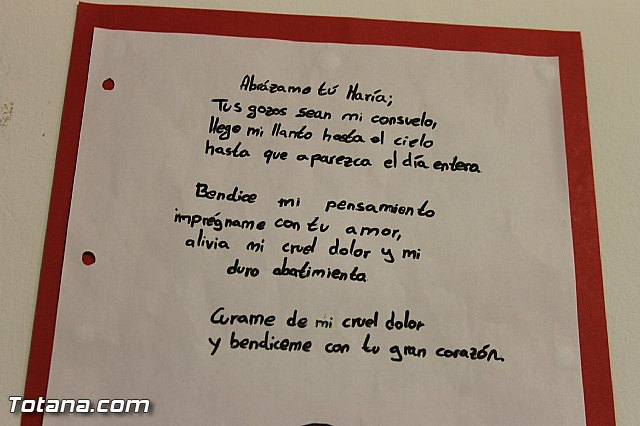 Abrázame tú María;
Tus gozos sean mi consuelo,
llege mi llanto hasta el cielo
hasta que aparezca el día entera
Bendice mi pensamiento
imprégname con tu amor,
alivia mi cruel dolor y mi
duro abatimienta
Curame de mi cruel dolor
y bendiceme con tu gran corazón.
Totana.com